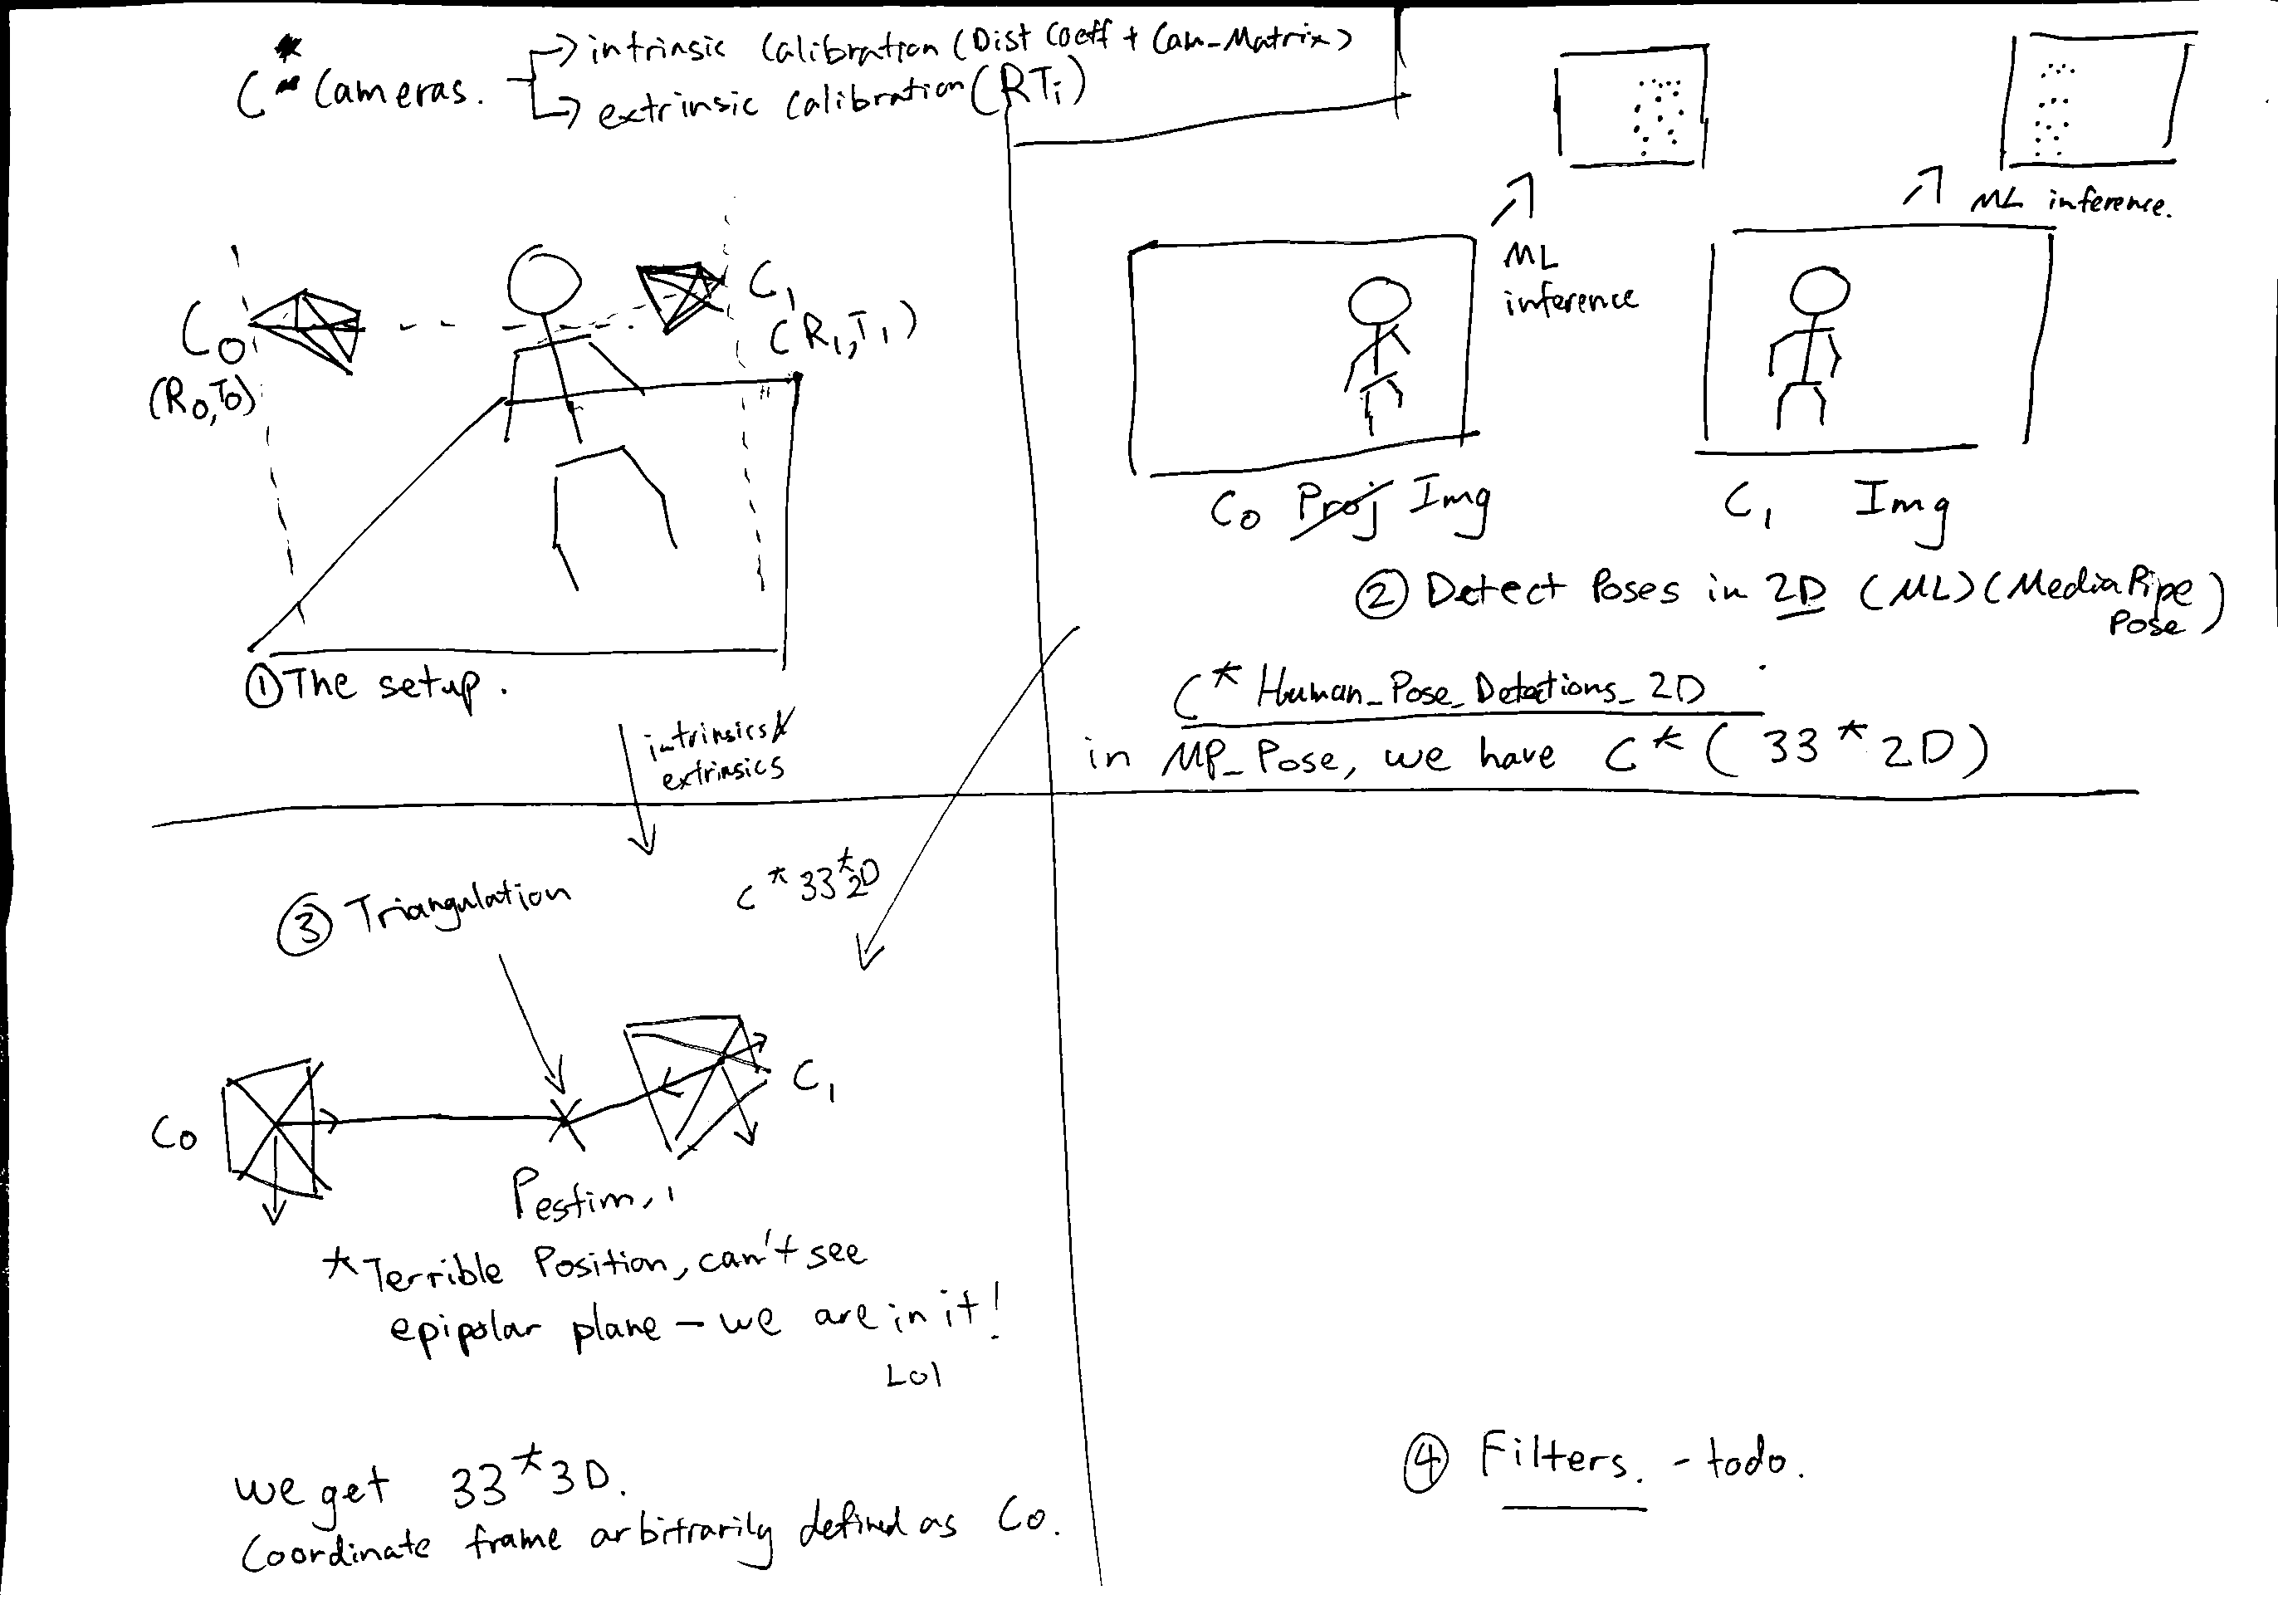 C * Cameras.
→ intrinsic Calibration (Dist Coeff + Cam_Matrix)
→ extrinsic Calibration (RTi)
C0
(R0,T0)
C1
(R1,T1)
① The setup.
ML inference.
ML
inference
C0 Proj Img
C1 Img
② Detect Poses in 2D (ML) (MediaPipe
Pose)
C * Human_Pose_Detections_2D
in MP_Pose, we have C * ( 33 * 2D )
intrinsics
extrinsics
③ Triangulation
C * 33 * 2D
C0
C1
Pestim, 1
* Terrible Position, can't see
epipolar plane – we are in it!
Lol
we get 33 * 3D.
Coordinate frame arbitrarily defined as C0.
④ Filters. - todo.